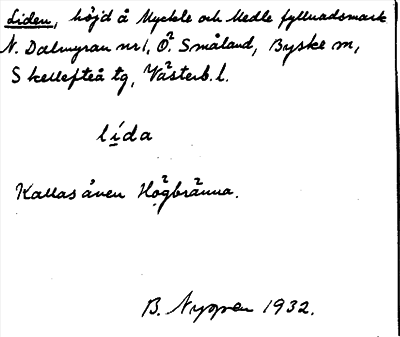 Liden, höjd å Myckle och Medle fyllnadsmark
N. Dalmyran nr 1, Ö. Småland, Byske sn,
Skellefteå tg, Västerb. l.
lída
Kallas även Högbränna.
B. Nygren 1932.